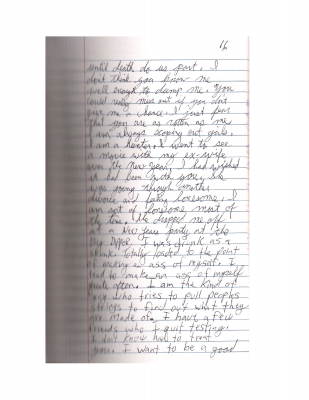 16
until death do us part. I
don't think you know me
well enough to dump me. You
could really miss out if you don't
give me a chance. I just feel
that you are as rotten as me
I am always scoping out girls.
I am a hunter. I went to see
a movie with my ex-wife
over the New year. I had wished
it had been with you. She
was going through another
divorce and feeling lonesome. I
am sort of lonesome most of
the time. She dropped me off
at a New Years party at the
Big Dipper. I was drunk as a
skunk. Totally loaded to the point
of making an ass of myself. I
tend to make an ass of myself
quite often. I am the kind of
guy who tries to pull peoples
strings to find out what they
are made of. I have a few
friends who I quit testing.
I don't know how to treat
you. I want to be a good